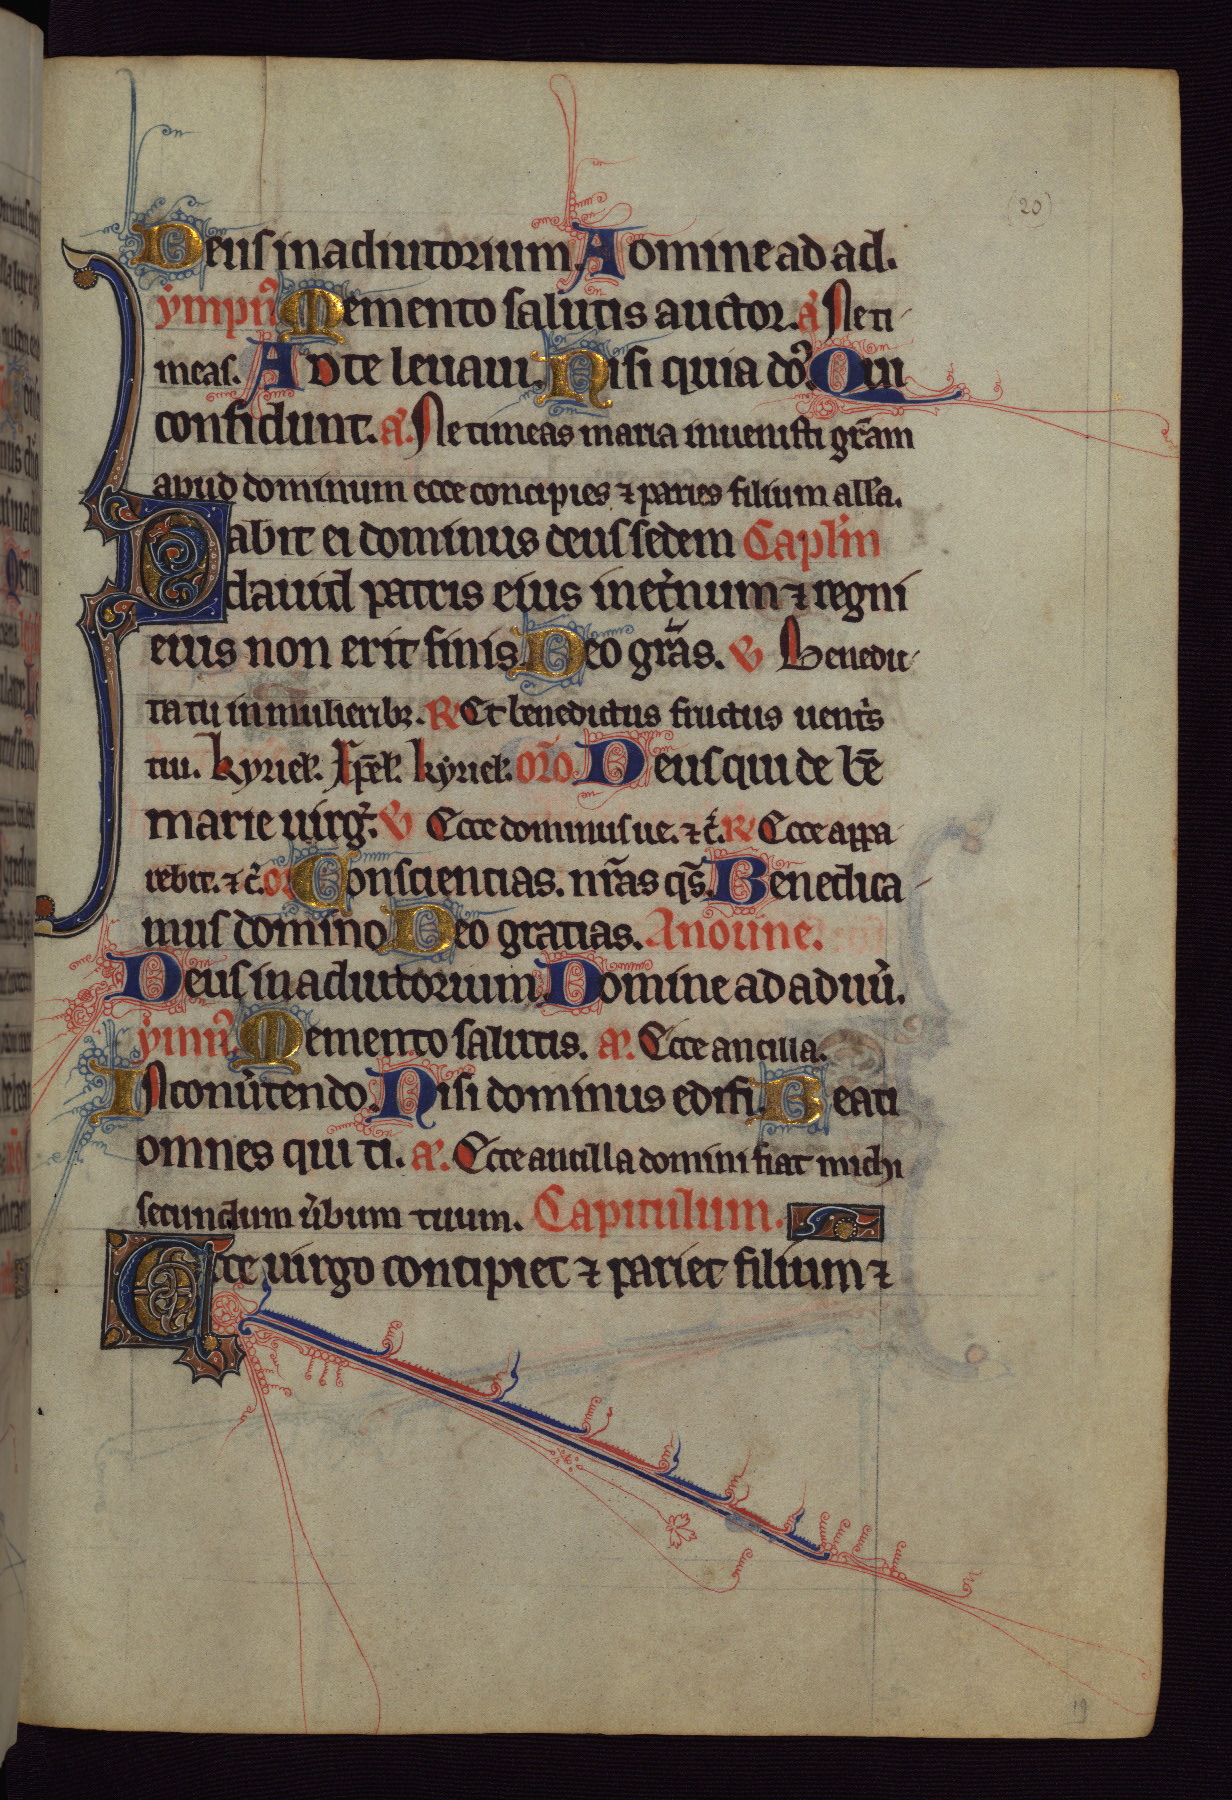 (20)
Deus in adiutorium. Domine ad ad.
ympn̄ Memento salutis auctor. a᷑ Ne ti
meas. AD te leuaui. Nisi quia dn̄s. Qui
confidunt. a᷑. Ne timeas maria inuenisti gr̄am
apud dominum ecce concipies ⁊ paries filium all'a.
Dabit ei dominus deus sedem Cap̄lm
dauid patris eius in et'num ⁊ regni
eius non erit finis Deo gr̄as. V Benedic
ta tu in mulieribꝫ. R Et benedictus fructus uent's
tui. kyriel'. Xp̄el'. kyriel'. or̄o Deus qui de b̄e
marie uirg̾. V Ecce dominus ue. ⁊ c̾. R Ecce appa
rebit. ⁊ c̾. or Consciencias. nr̄as qs̄. Benedica
mus domino Deo gratias. A noune.
Deus in adiuttorium. Domine ad adiuu̾.
ymn̄. Memento salutis. a᷑. Ecce ancilla.
IN conu̾tendo. Nisi dominus edifi. Beati
omnes qui ti. a᷑. Ecce ancilla domini fiat michi
secundum u̾bum tuum. Capitulum.
Ecce uirgo concipiet ⁊ pariet filium ⁊
19